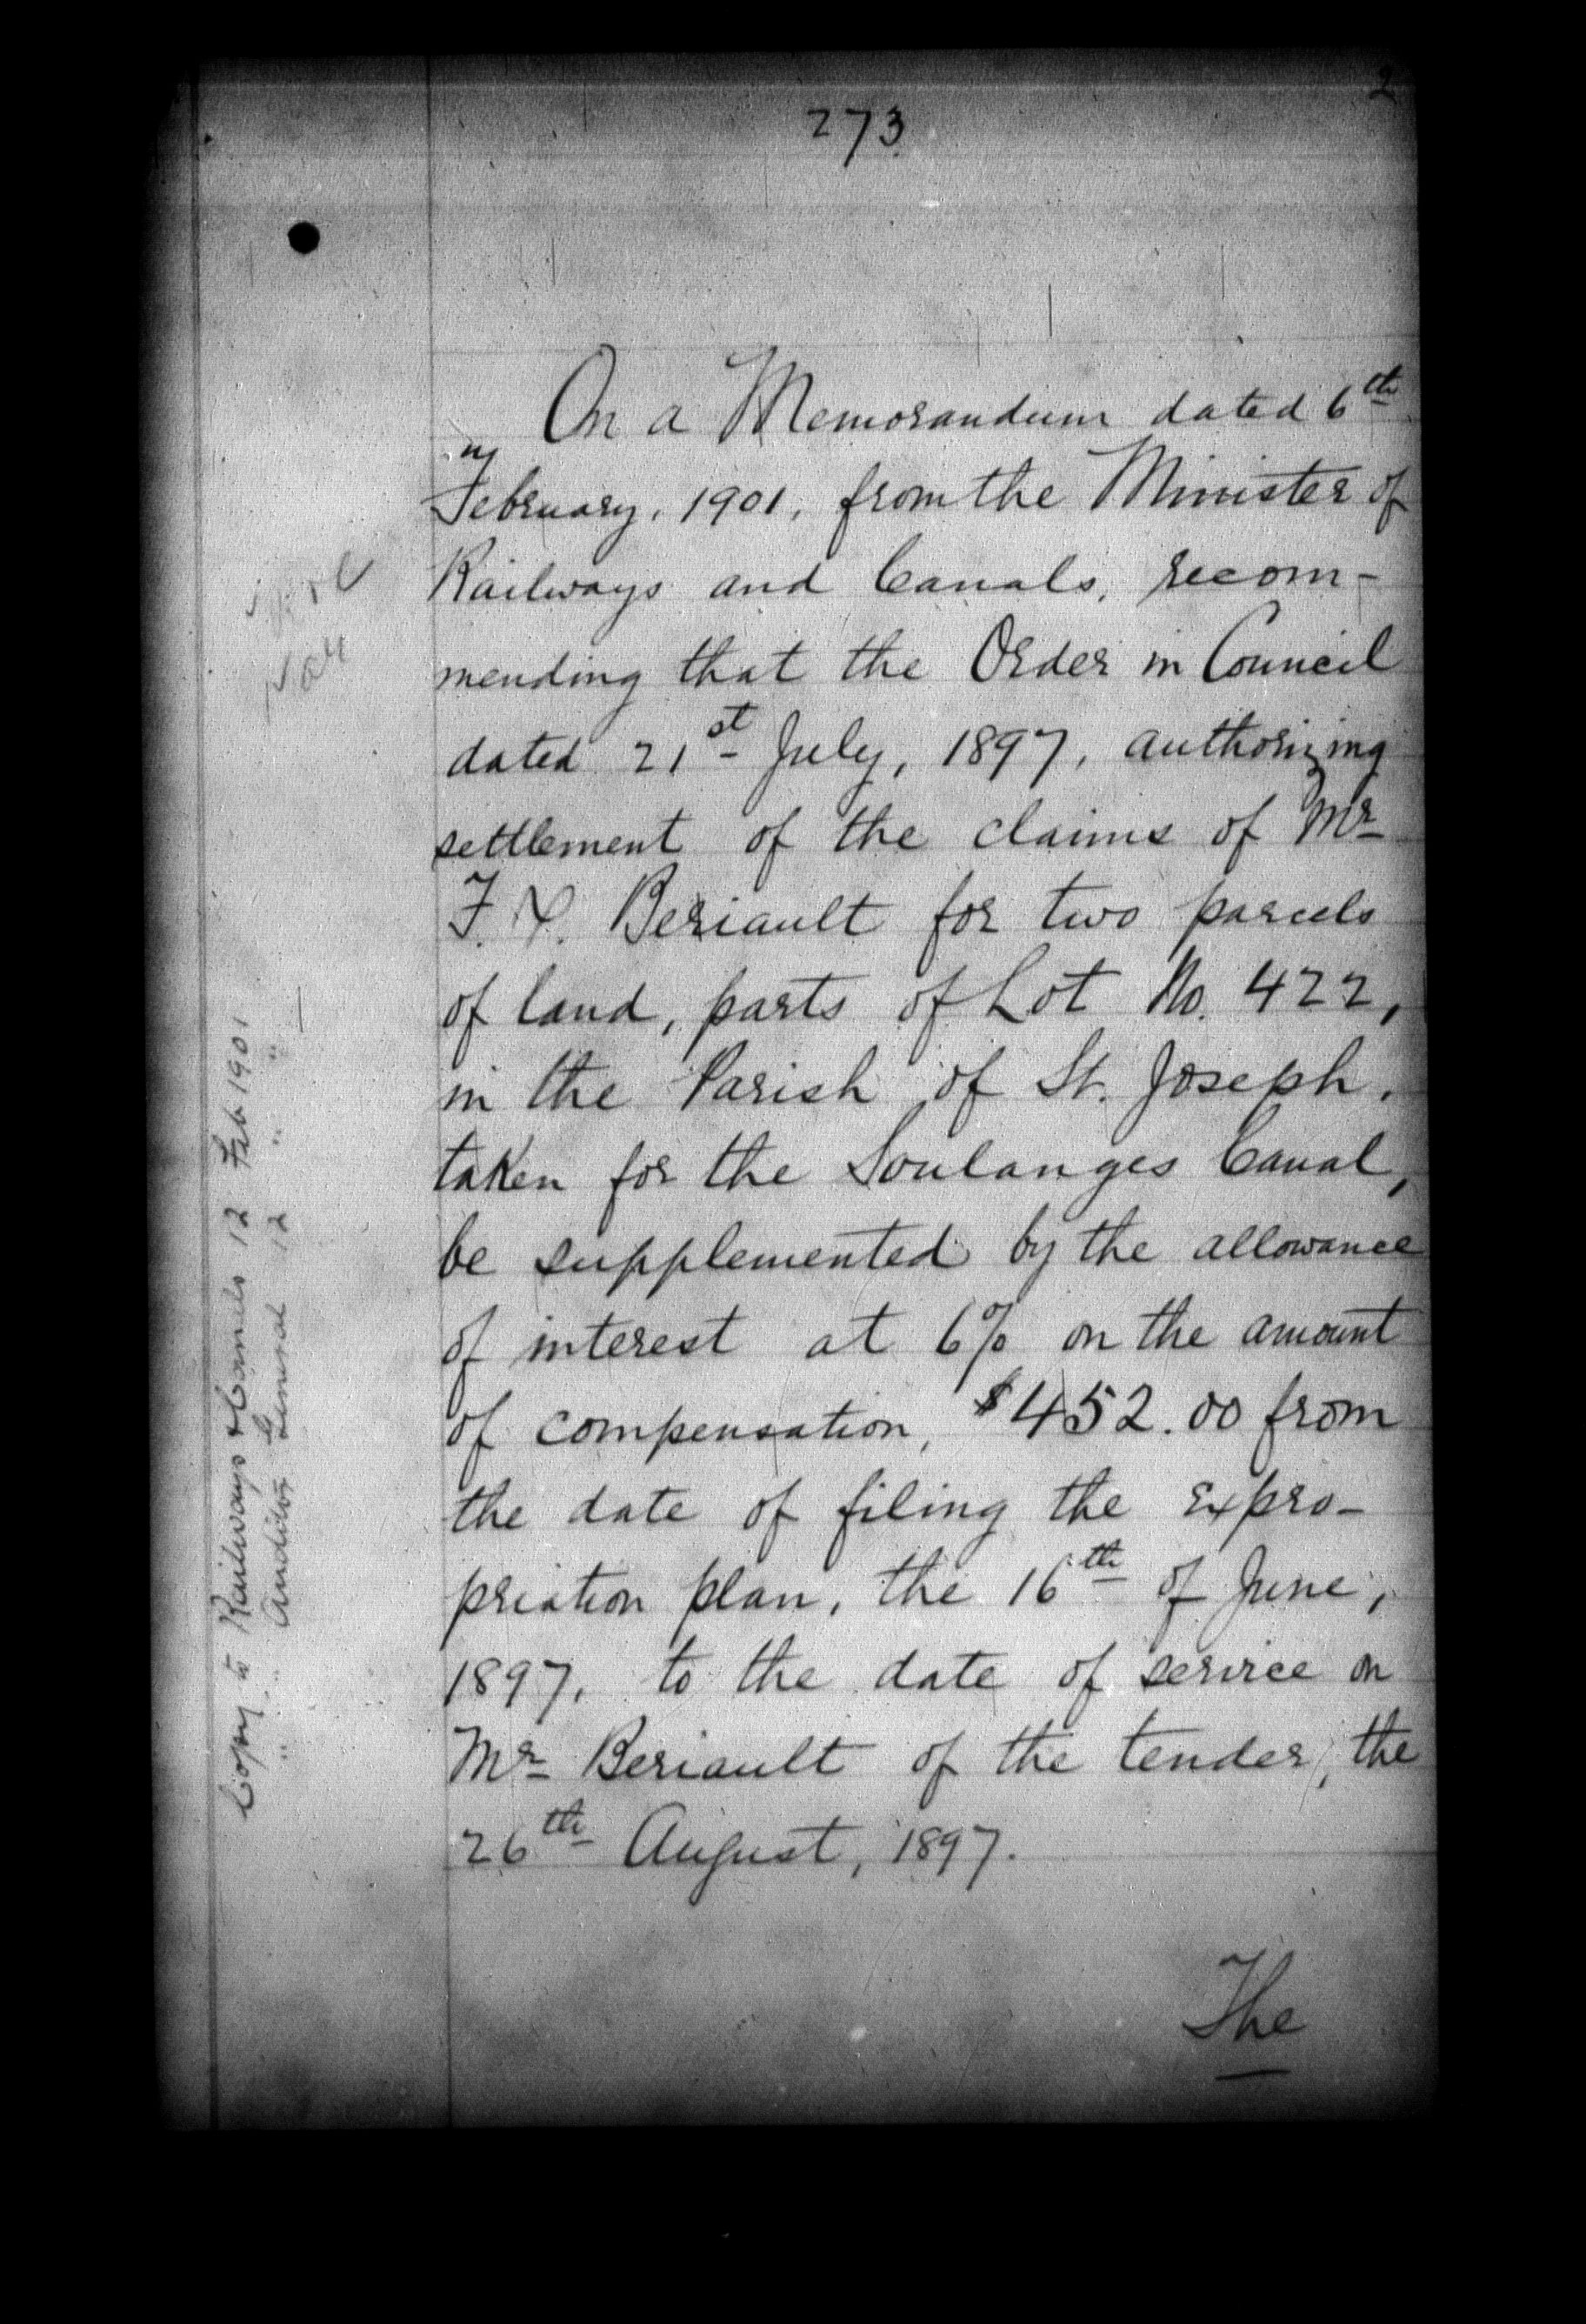 2
273
On a Memorandum dated 6th
February, 1901, from the Minister of
Railways and Canals, recom-
mending that the Order in Council
dated 21st July, 1897, authorizing
settlement of the claims of Mr
F. X. Beriault for two parcels
of land, parts of Lot No. 422,
in the Parish of St. Joseph,
taken for the Soulanges Canal,
be supplemented by the allowance
of interest at 6% on the amount
of compensation, $452.00 from
the date of filing the expro-
priation plan, the 16th of June,
1897, to the date of service on
Mr Beriault of the tender, the
26th August, 1897.
The
Copy to Railways & Canals 12 Feb 1901
" " Auditor General 12 " "